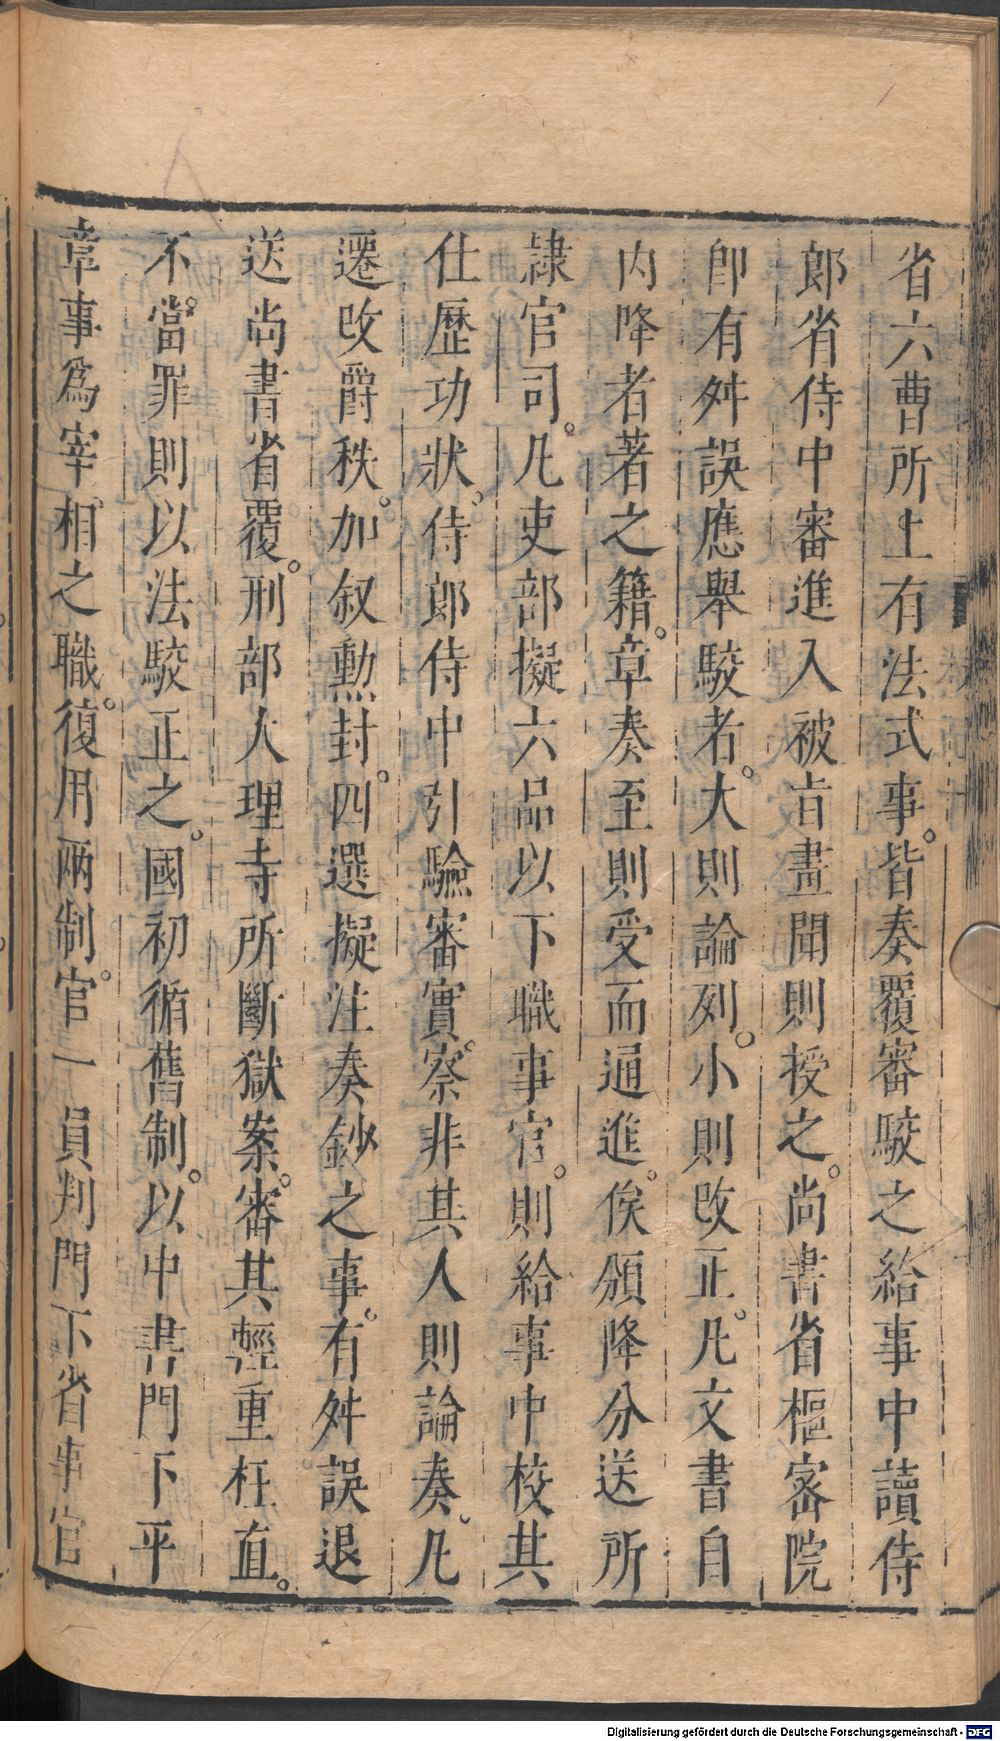 省六曹所上有法式事。皆奏覆審駮之給事中讀侍
郎省侍中審進入被旨畫聞則授之。尚書省樞密院
即有舛誤應舉駮者。大則論列。小則改正。凡文書自
内降者著之籍。章奏至則受而通進。俟頒降分送所
隷官司。凡吏部擬六品以下職事官。則給事中校其
仕歷功狀。侍郎侍中引驗審實。察非其人則論奏。凡
遷改爵秩。加叙勳封。四選擬注奏鈔之事。有舛誤退
送尚書省覆。刑部大理寺所斷獄案。審其輕重枉直。
不當罪則以法駮正之。國初循舊制。以中書門下平
章事爲宰相之職。復用兩制官一員判門下省事官
Digitalisierung gefördert durch die Deutsche Forschungsgemeinschaft - DFG